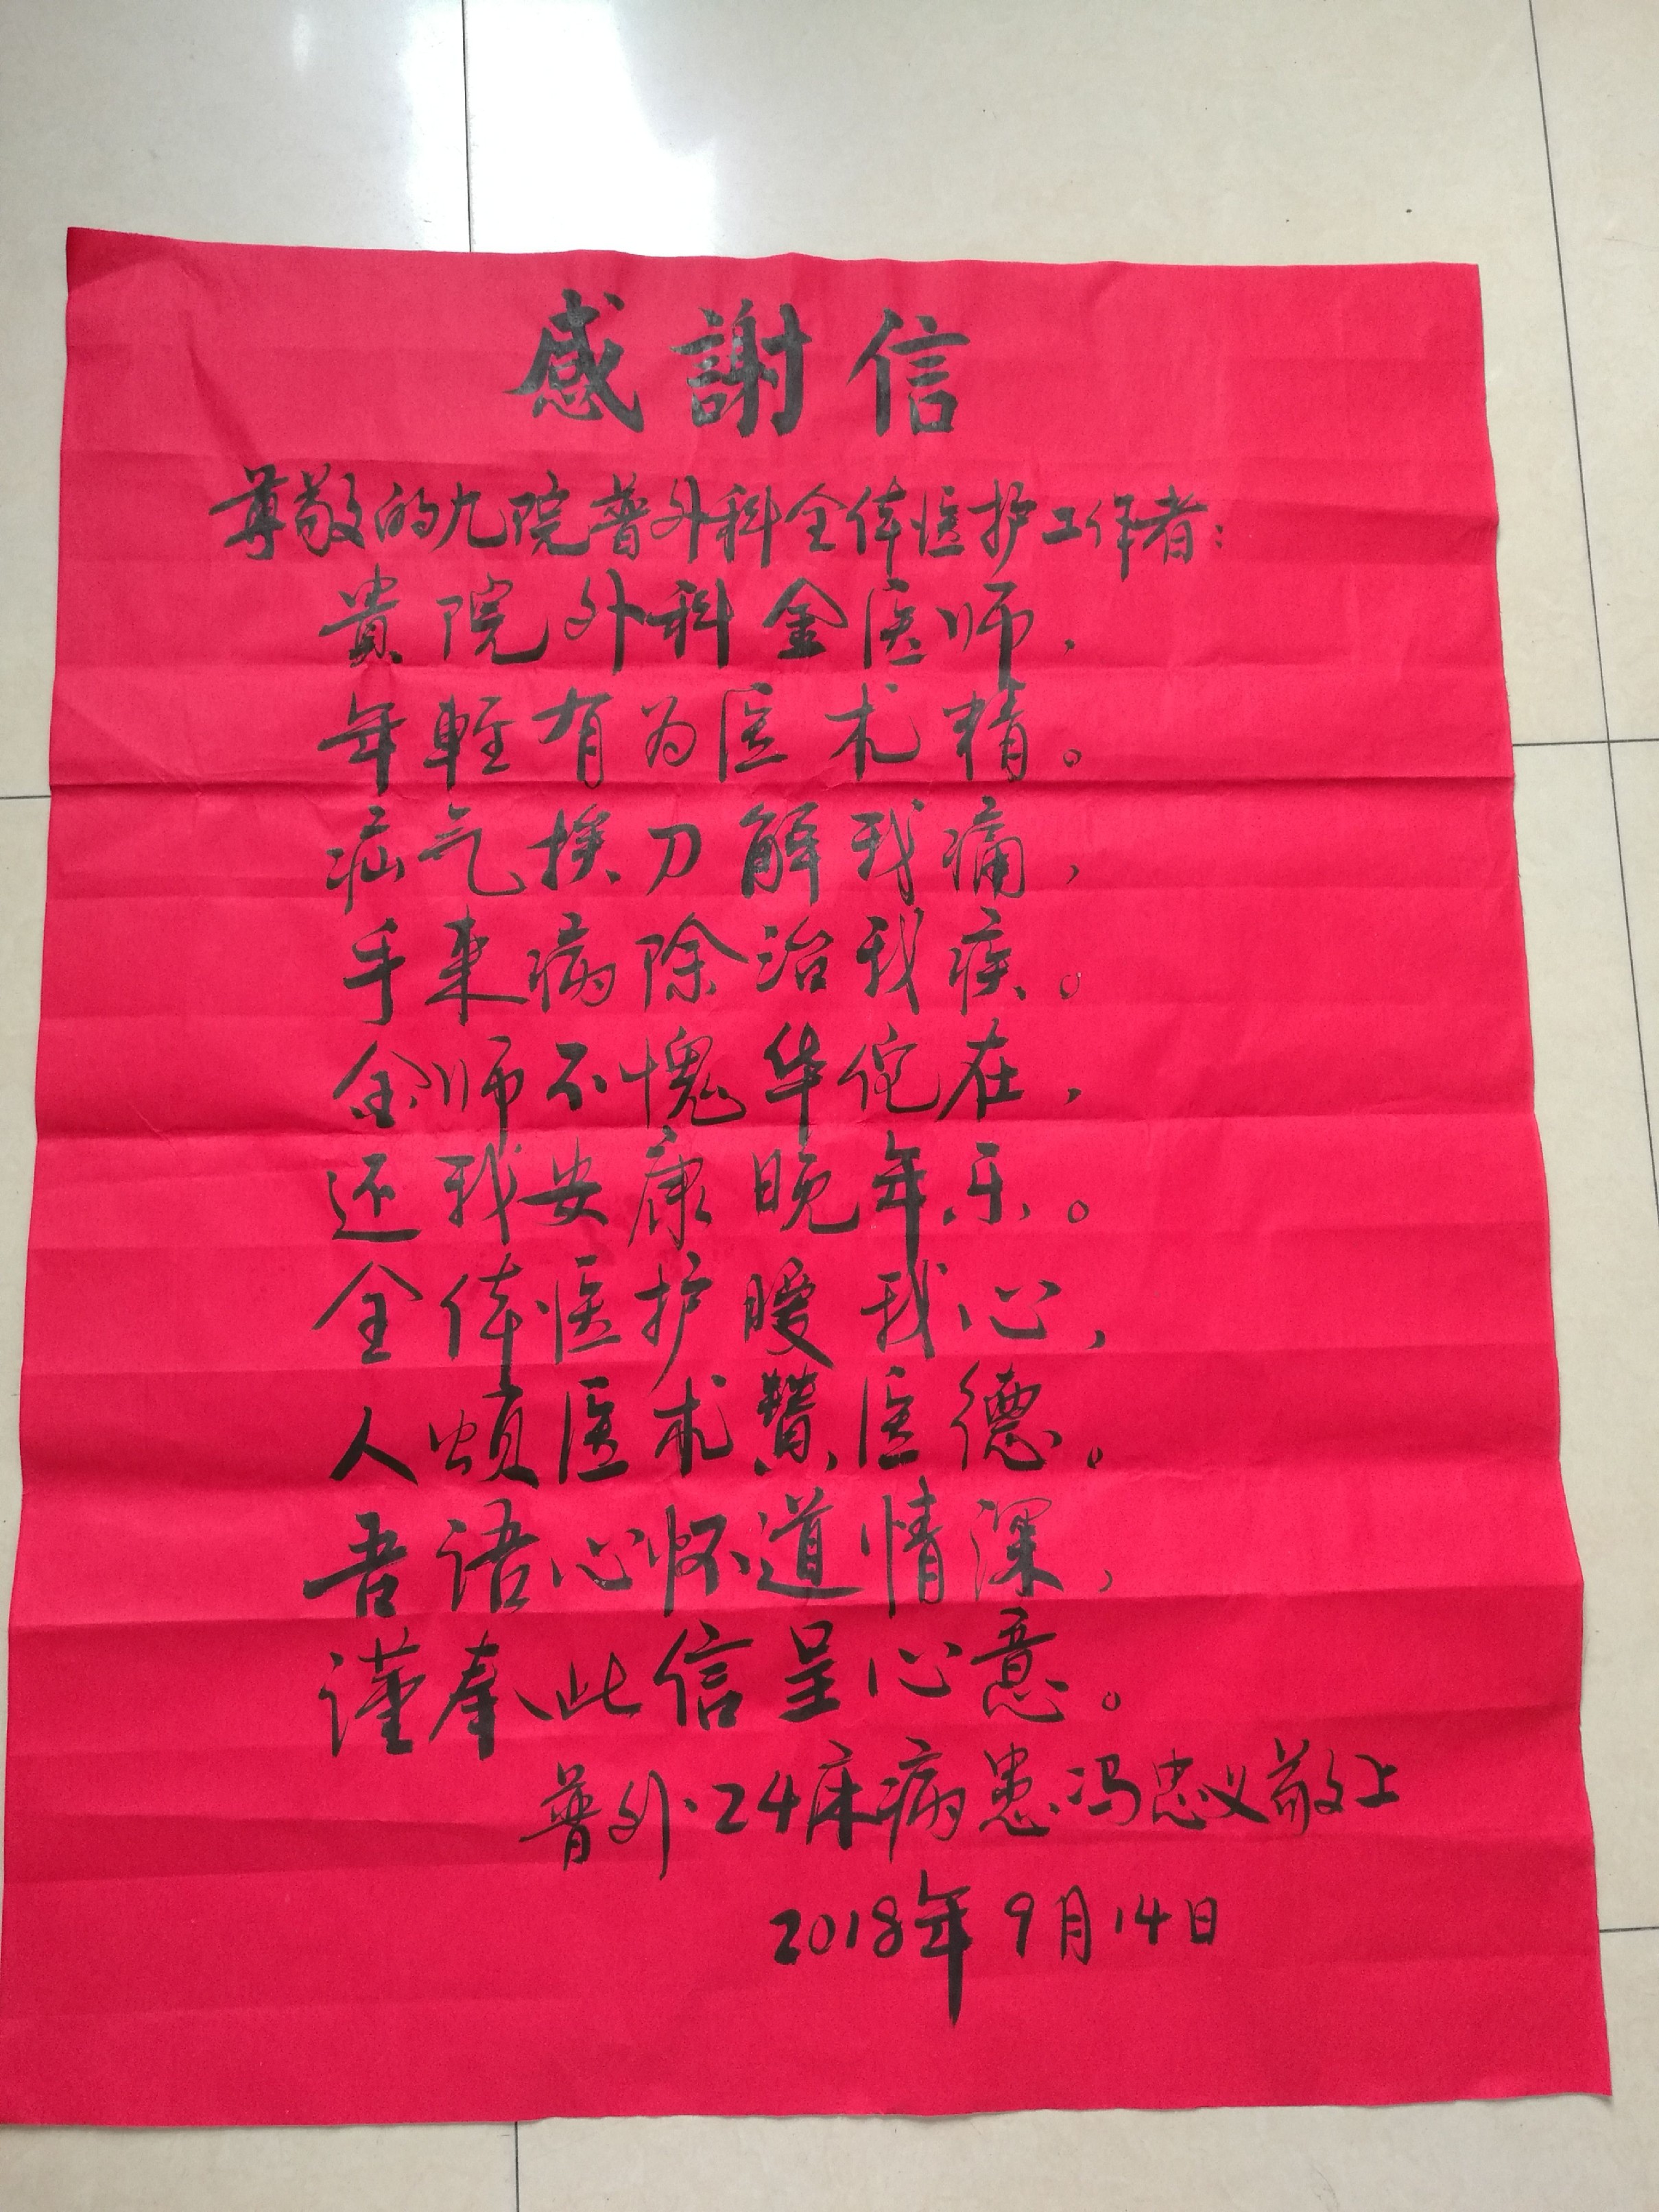 感謝信
尊敬的九院普外科全体医护工作者：
貴院外科金医师，
年輕有为医术精。
疝气挨刀解我痛，
手来病除治我疾。
金师不愧华佗在，
还我安康晚年乐。
全体医护暖我心，
人颂医术贊医德。
吾语心怀道情深，
谨奉此信呈心意。
普外、24床病患冯忠义敬上
2018年9月14日